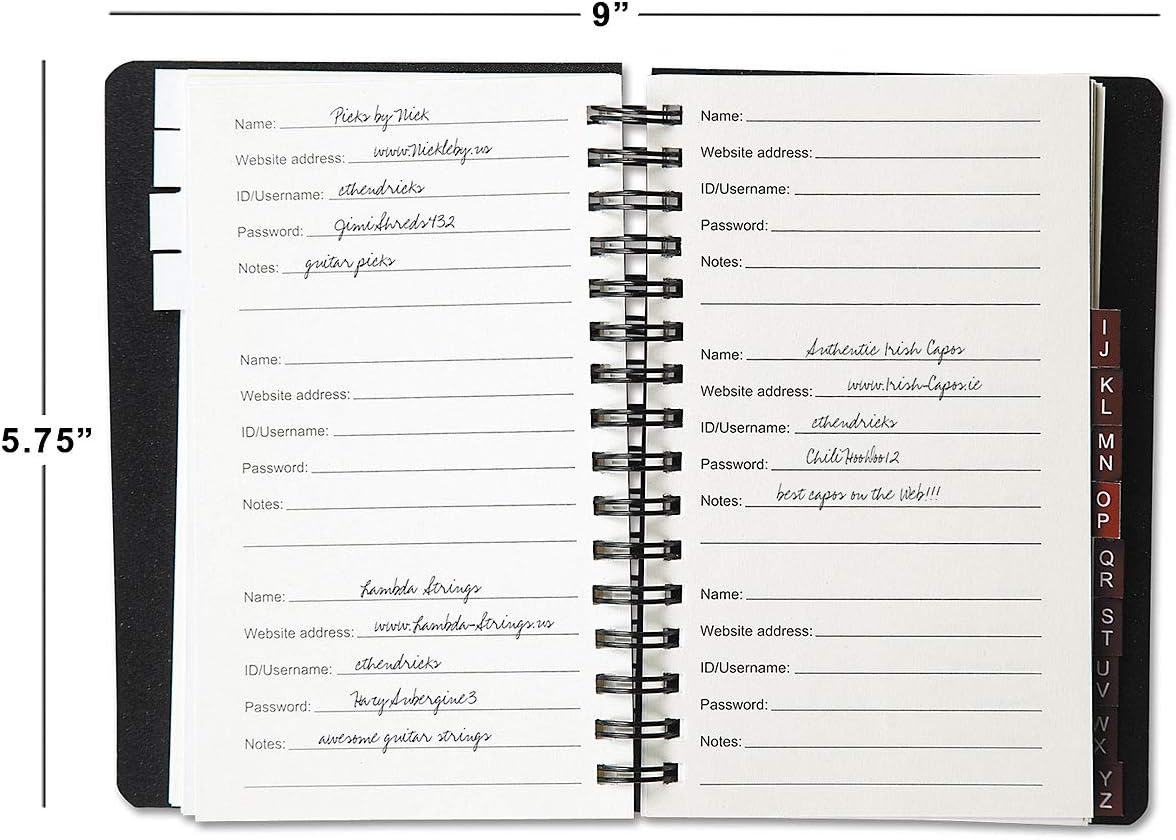 9”
5.75”
Name: Picks by Nick
Website address: www.Nickleby.us
ID/Username: cthendricks
Password: JimiShreds432
Notes: guitar picks
Name:
Website address:
ID/Username:
Password:
Notes:
Name: Lambda Strings
Website address: www.Lambda-Strings.us
ID/Username: cthendricks
Password: HazyAubergine3
Notes: awesome guitar strings
Name:
Website address:
ID/Username:
Password:
Notes:
Name: Authentic Irish Capos
Website address: www.Irish-Capos.ie
ID/Username: cthendricks
Password: ChiliHooDoo12
Notes: best capos on the Web!!!
Name:
Website address:
ID/Username:
Password:
Notes:
I
J
K
L
M
N
O
P
Q
R
S
T
U
V
W
X
Y
Z